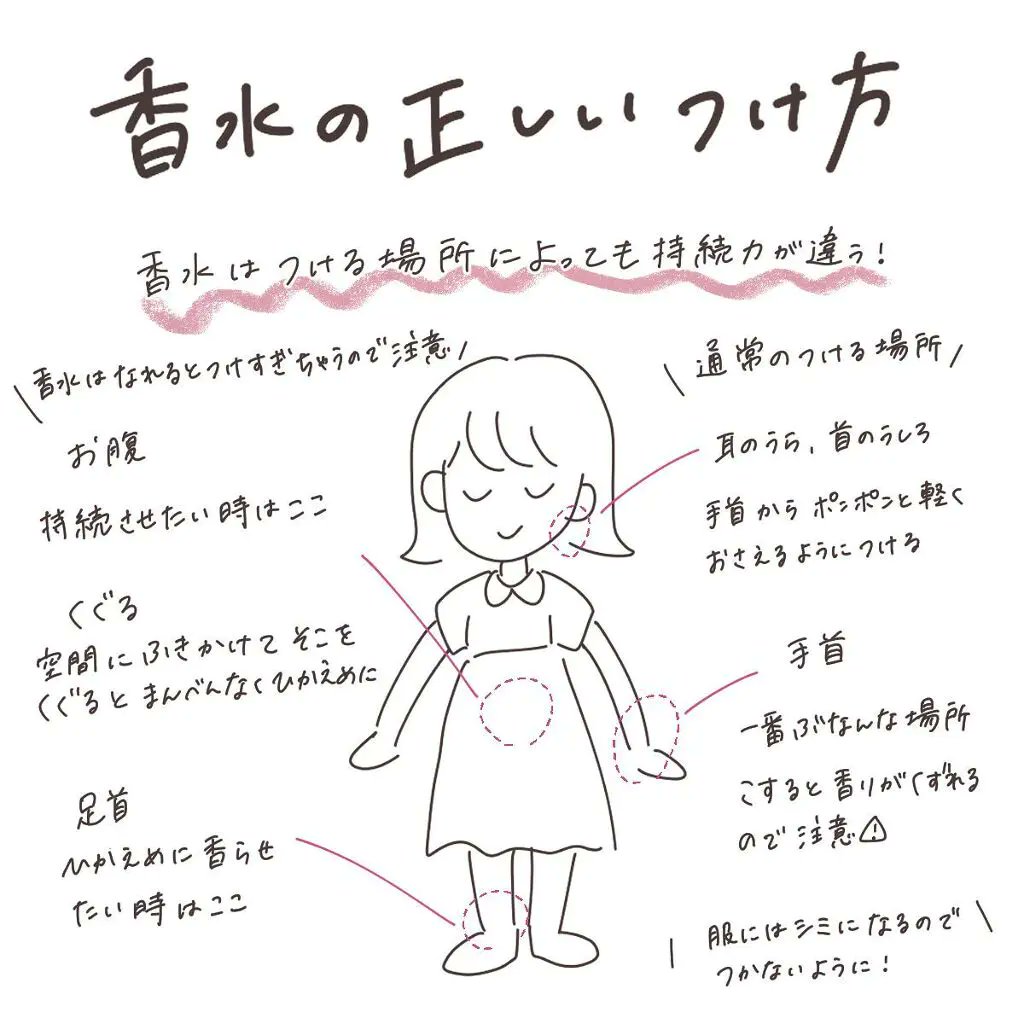 香水の正しいつけ方
香水はつける場所によっても持続力が違う!
香水はなれるとつけすぎちゃうので注意
お腹
持続させたい時はここ
くぐる
空間にふきかけてそこを
くぐるとまんべんなくひかえめに
足首
ひかえめに香らせ
たい時はここ
通常のつける場所
耳のうら、首のうしろ
手首からポンポンと軽く
おさえるようにつける
手首
一番ぶなんな場所
こすると香りがくずれる
ので注意⚠
服にはシミになるので
つかないように!